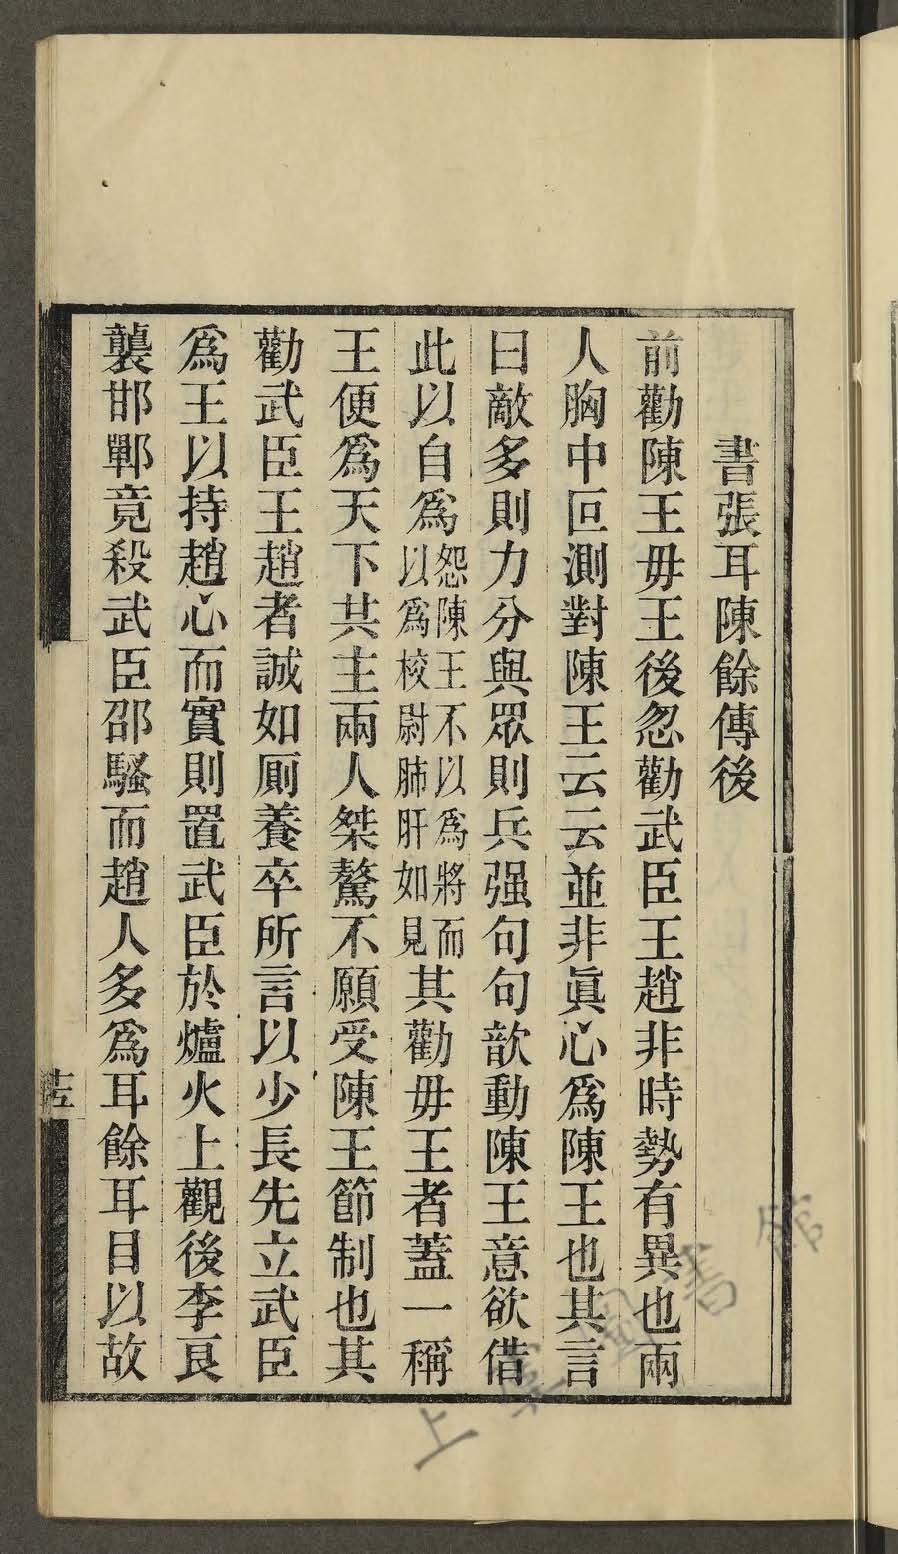 書張耳陳餘傳後
前勸陳王毋王後忽勸武臣王趙非時勢有異也兩
人胸中叵測對陳王云云並非眞心爲陳王也其言
曰敵多則力分與眾則兵强句句歆動陳王意欲借
此以自爲怨陳王不以為將而以爲校尉肺肝如見其勸毋王者蓋一稱
王便爲天下共主兩人桀驁不願受陳王節制也其
勸武臣王趙者誠如厠養卒所言以少長先立武臣
爲王以持趙心而實則置武臣於爐火上觀後李良
襲邯鄲竟殺武臣邵騷而趙人多爲耳餘耳目以故
十五
上虞圖書館